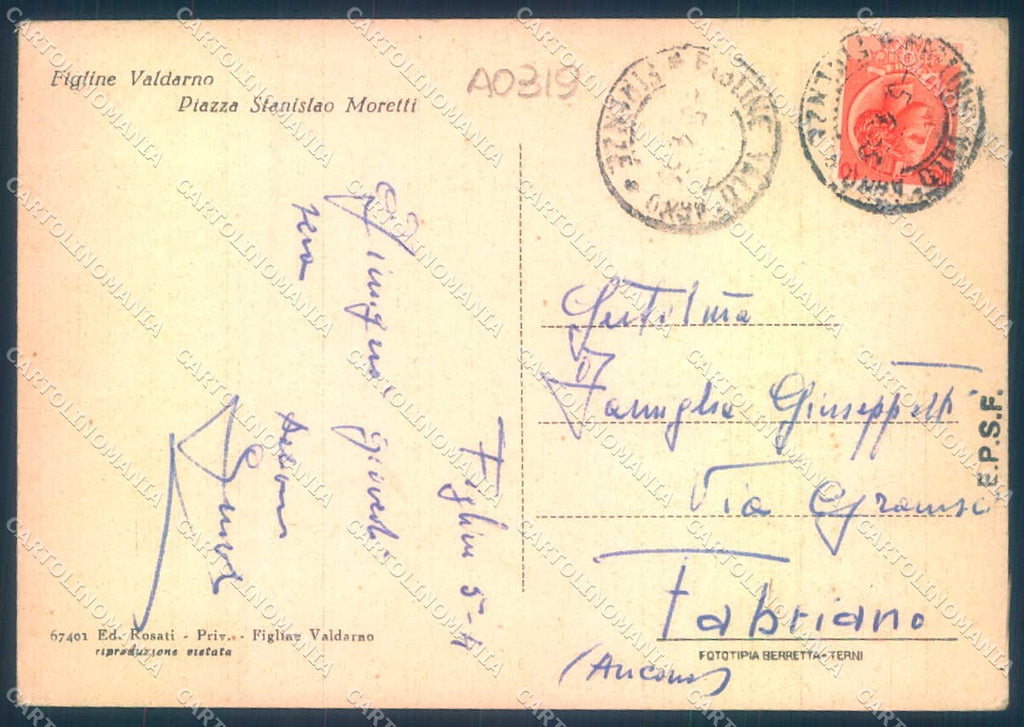 Figline Valdarno
Piazza Stanislao Moretti
A0319
FIGLINE VALDARNO * FIRENZE *
Figline 5-4
Giungerò giovedì
sera
Gent.ma
Famiglia Giuseppetti
Via Gramsci
Fabriano
(Ancona)
E.P.S.F.
67401 Ed. Rosati - Priv. - Figline Valdarno
riproduzione vietata
FOTOTIPIA BERRETTA - TERNI
CARTOLINOMANIA